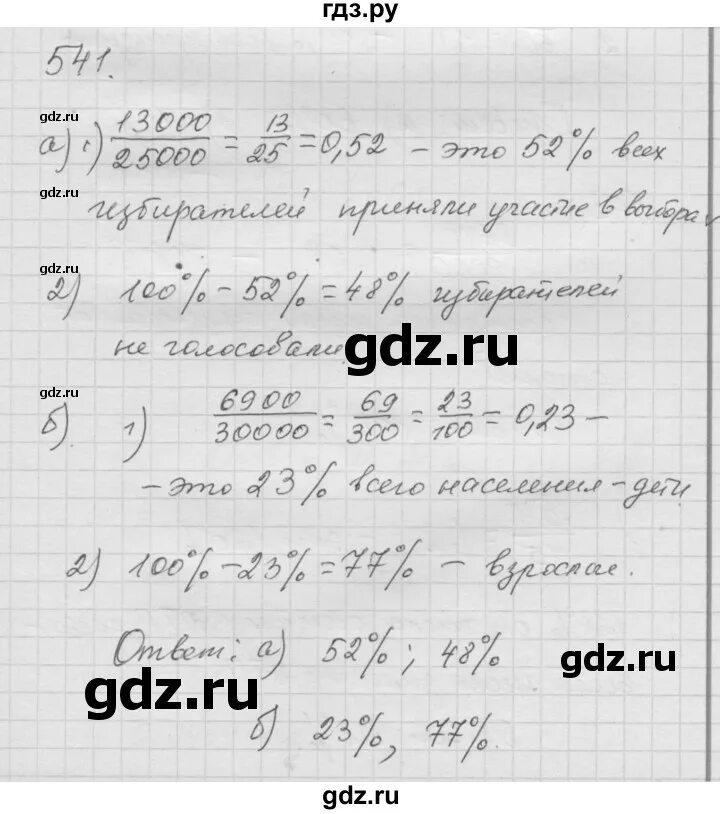 гдз.ру
541.
gdz.ru
а) 1) 13000/25000 = 13/25 = 0,52 – это 52% всех
gdz.ru
избирателей приняли участие в выбора
gdz.ru
2) 100% – 52% = 48% избирателей
gdz.ru
не голосовали.
gdz.ru
б) 1) 6900/30000 = 69/300 = 23/100 = 0,23 –
– это 23% всего населения – дети
gdz.ru
2) 100% – 23% = 77% – взрослые.
gdz.ru
Ответ: а) 52%; 48%
gdz.ru
gdz.ru
б) 23%, 77%.
gdz.ru
gdz.ru